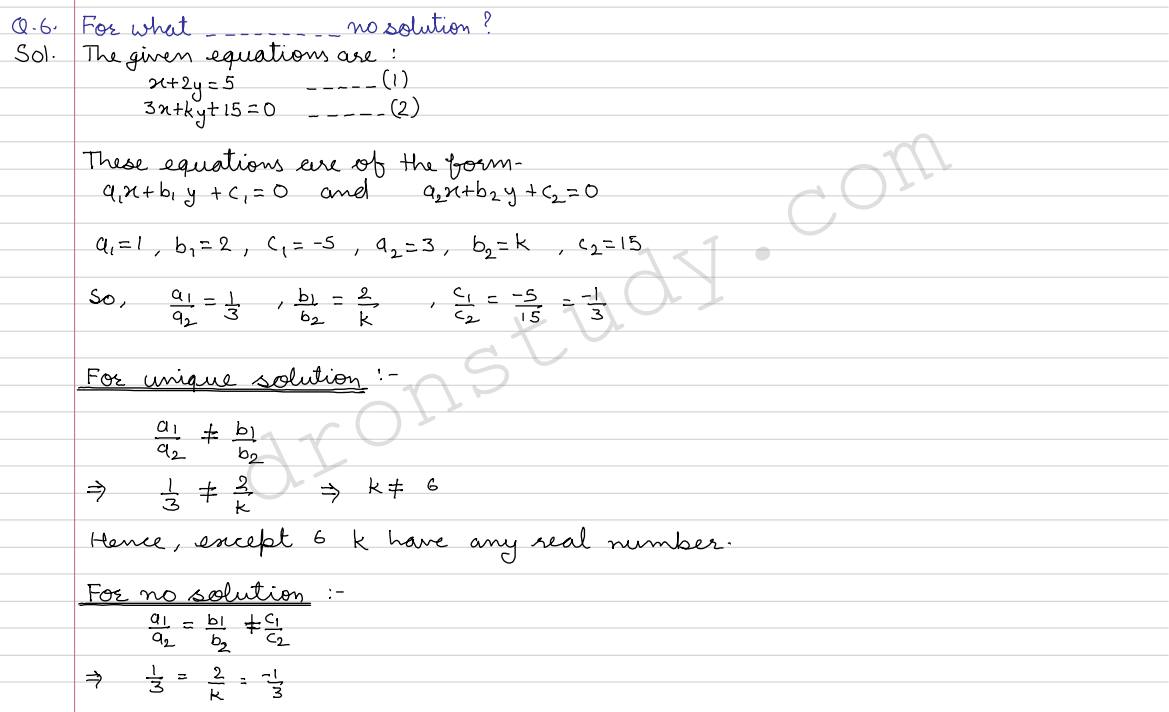 Q.6. For what _ _ _ _ _ _ _ _ _ no solution ?
Sol. The given equations are :
x+2y=5 _ _ _ _ _ (1)
3x+ky+15=0 _ _ _ _ _ (2)
These equations are of the form-
a₁x+b₁y+c₁=0 and a₂x+b₂y+c₂=0
a₁=1, b₁=2, c₁=-5, a₂=3, b₂=k, c₂=15
So, a₁/a₂ = 1/3 , b₁/b₂ = 2/k , c₁/c₂ = -5/15 = -1/3
For unique solution :-
a₁/a₂ ≠ b₁/b₂
⇒ 1/3 ≠ 2/k ⇒ k ≠ 6
Hence, except 6 k have any real number.
For no solution :-
a₁/a₂ = b₁/b₂ ≠ c₁/c₂
⇒ 1/3 = 2/k = -1/3
dronstudy.com